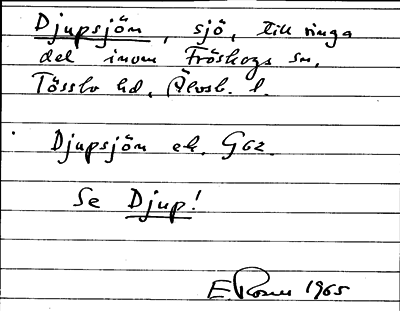 Djupsjön, sjö, till ringa
del inom Fröskogs sn,
Tössbo hd, Älvsb. l.
Djupsjön ek. G62.
Se Djup!
E. Rosen 1965